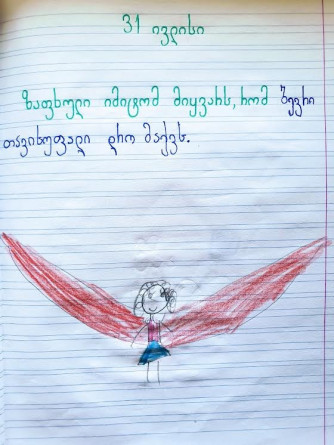 31 ივლისი
ზაფხული იმიტომ მიყვარს, რომ ბევრი
თავისუფალი დრო მაქვს.